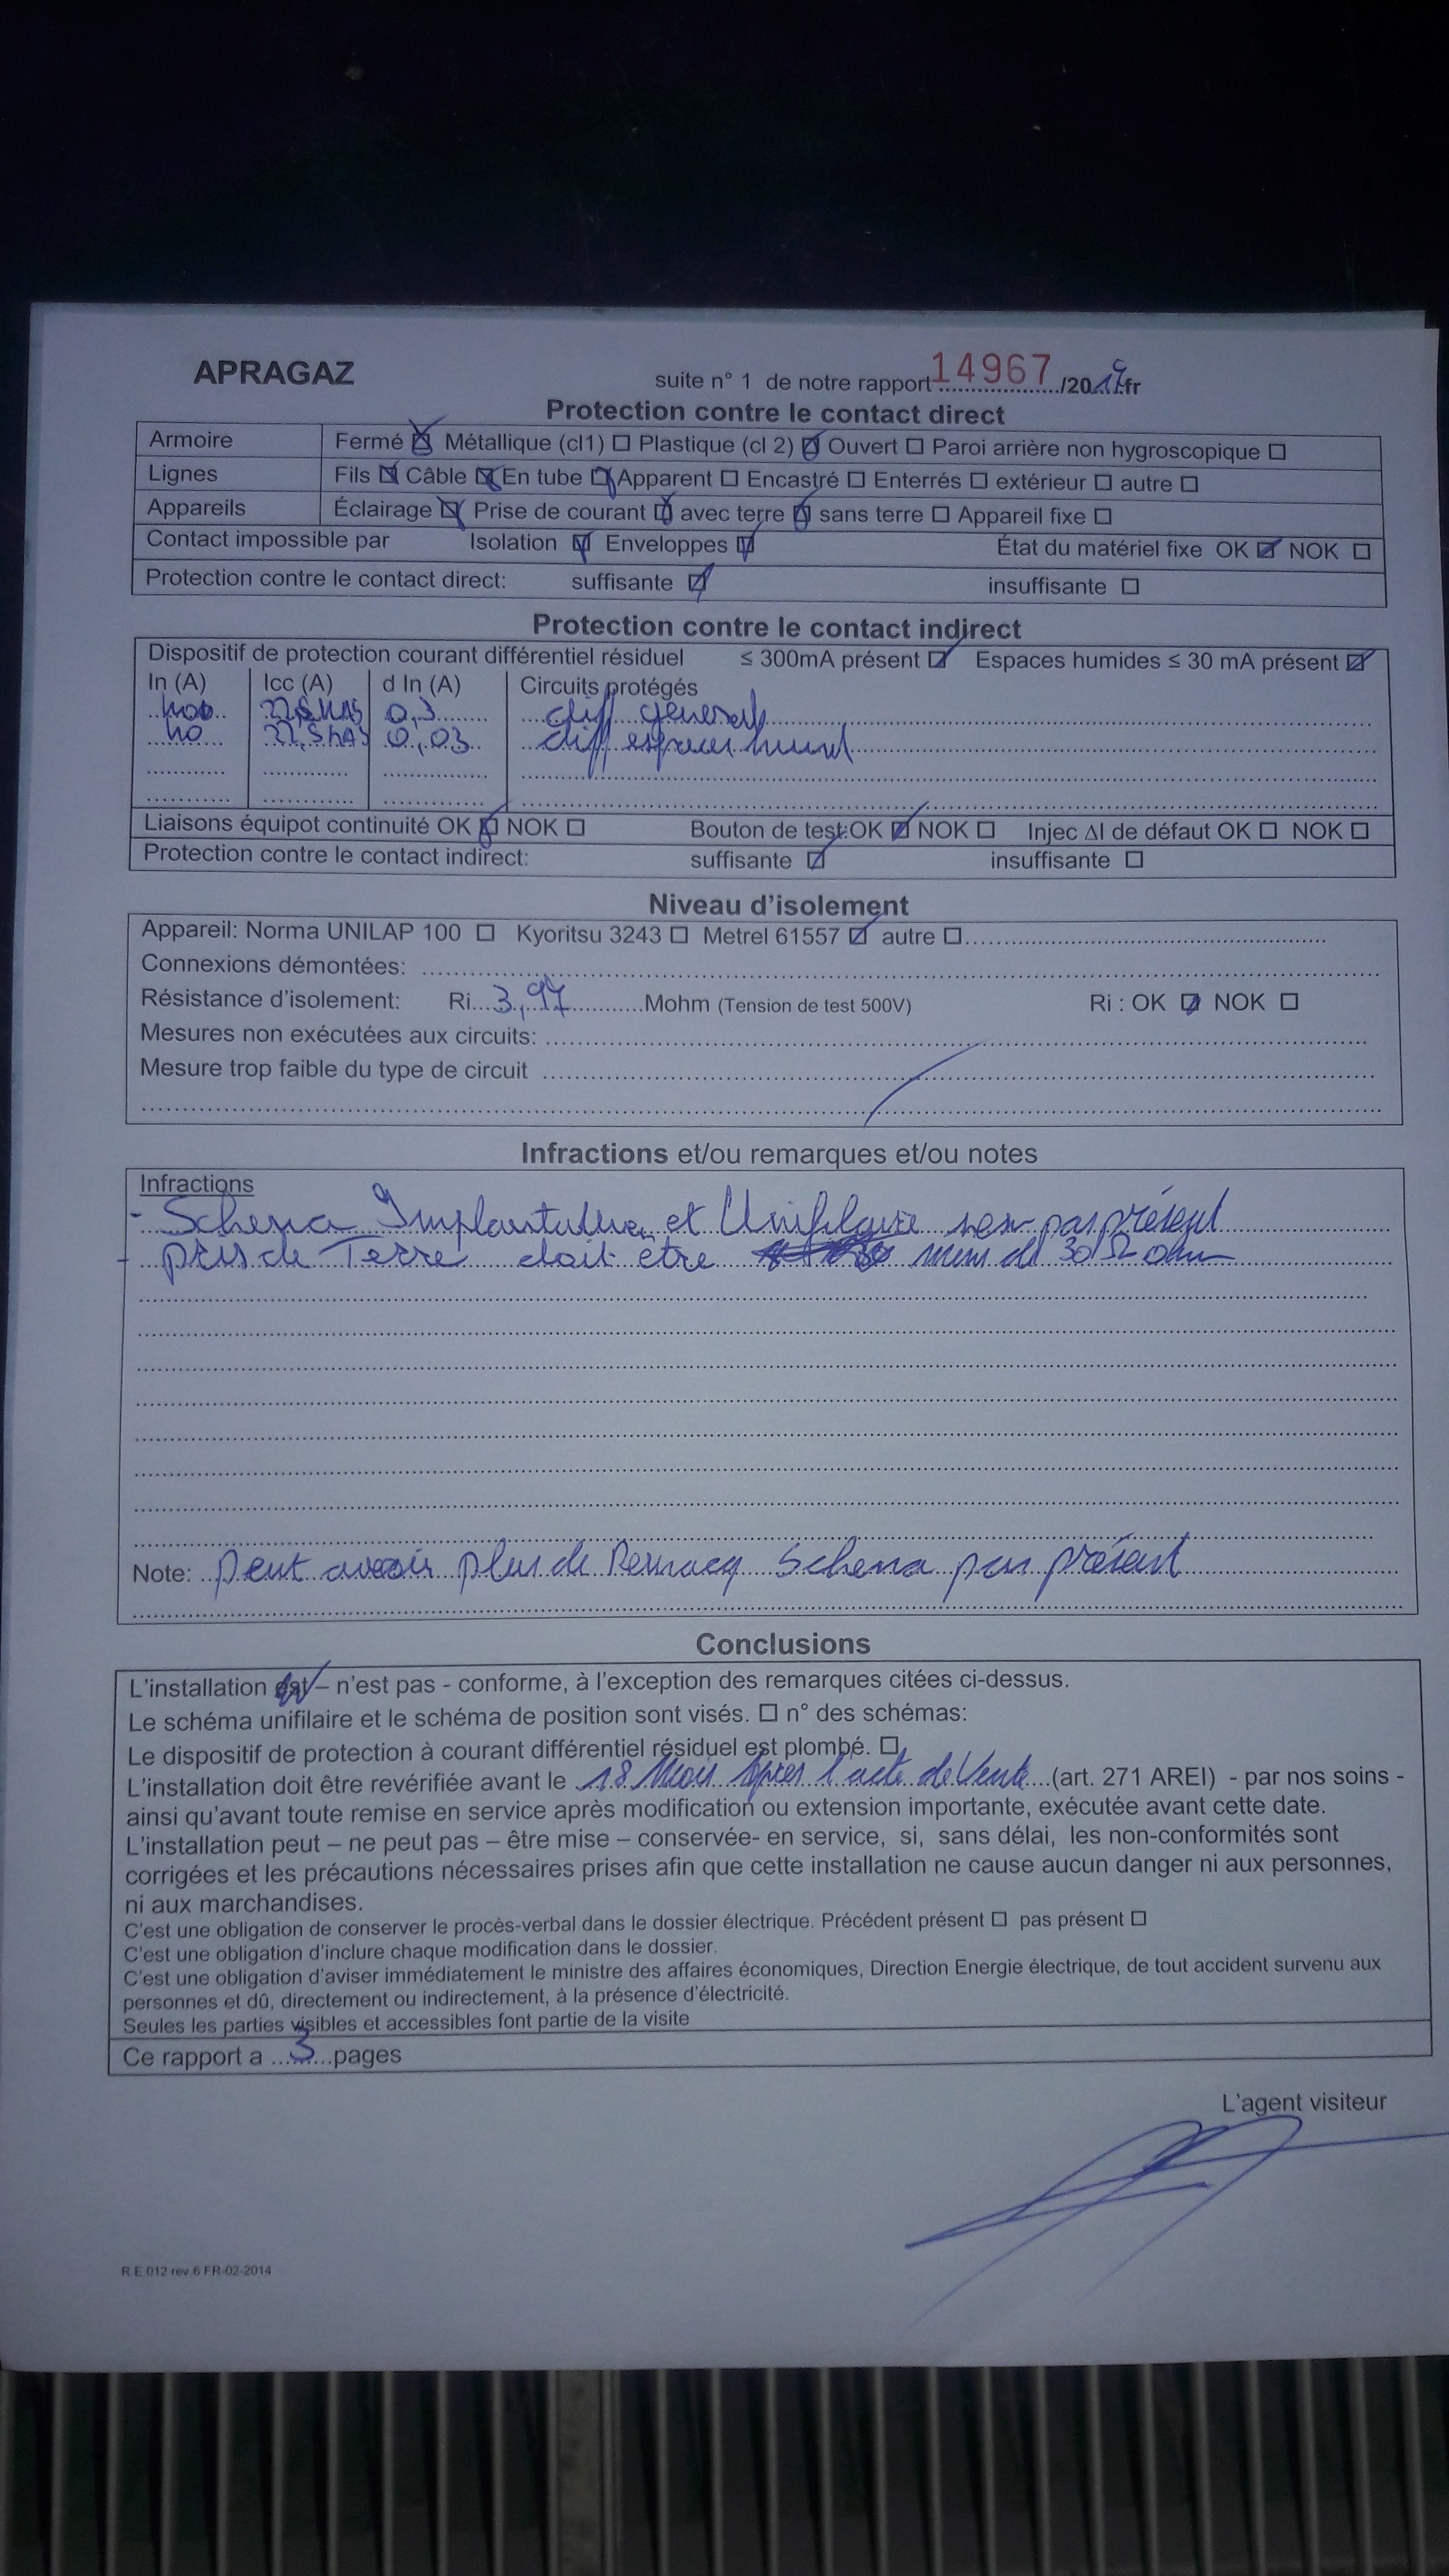 APRAGAZ
suite n° 1 de notre rapport 14967 /20 fr
Protection contre le contact direct
Armoire Fermé ☒ Métallique (cl1) ☐ Plastique (cl 2) ☒ Ouvert ☐ Paroi arrière non hygroscopique ☐
Lignes Fils ☒ Câble ☒ En tube ☒ Apparent ☐ Encastré ☐ Enterrés ☐ extérieur ☐ autre ☐
Appareils Éclairage ☒ Prise de courant ☒ avec terre ☒ sans terre ☐ Appareil fixe ☐
Contact impossible par Isolation ☒ Enveloppes ☒ État du matériel fixe OK ☒ NOK ☐
Protection contre le contact direct: suffisante ☒ insuffisante ☐
Protection contre le contact indirect
Dispositif de protection courant différentiel résiduel ≤ 300mA présent ☒ Espaces humides ≤ 30 mA présent ☒
In (A) Icc (A) d In (A) Circuits protégés
0,3 diff general
40 0,03 diff espaces humid
Liaisons équipot continuité OK ☒ NOK ☐ Bouton de test:OK ☒ NOK ☐ Injec ΔI de défaut OK ☐ NOK ☐
Protection contre le contact indirect: suffisante ☒ insuffisante ☐
Niveau d'isolement
Appareil: Norma UNILAP 100 ☐ Kyoritsu 3243 ☐ Metrel 61557 ☒ autre ☐
Connexions démontées:
Résistance d'isolement: Ri...3,97...Mohm (Tension de test 500V) Ri : OK ☒ NOK ☐
Mesures non exécutées aux circuits:
Mesure trop faible du type de circuit
Infractions et/ou remarques et/ou notes
Infractions
- Schema Implantation et Unifilaire pas présent
- pris de Terre doit être de 30 Ω ohm
Note: peut avoir plus de Remarq Schema pas présent
Conclusions
L'installation est – n'est pas - conforme, à l'exception des remarques citées ci-dessus.
Le schéma unifilaire et le schéma de position sont visés. ☐ n° des schémas:
Le dispositif de protection à courant différentiel résiduel est plombé. ☐
L'installation doit être revérifiée avant le 18 Mois Apres l'acte de Vente (art. 271 AREI) - par nos soins -
ainsi qu'avant toute remise en service après modification ou extension importante, exécutée avant cette date.
L'installation peut – ne peut pas – être mise – conservée- en service, si, sans délai, les non-conformités sont
corrigées et les précautions nécessaires prises afin que cette installation ne cause aucun danger ni aux personnes,
ni aux marchandises.
C'est une obligation de conserver le procès-verbal dans le dossier électrique. Précédent présent ☐ pas présent ☐
C'est une obligation d'inclure chaque modification dans le dossier.
C'est une obligation d'aviser immédiatement le ministre des affaires économiques, Direction Energie électrique, de tout accident survenu aux
personnes et dû, directement ou indirectement, à la présence d'électricité.
Seules les parties visibles et accessibles font partie de la visite
Ce rapport a ...3...pages
L'agent visiteur
R.E.012 rev.6 FR-02-2014